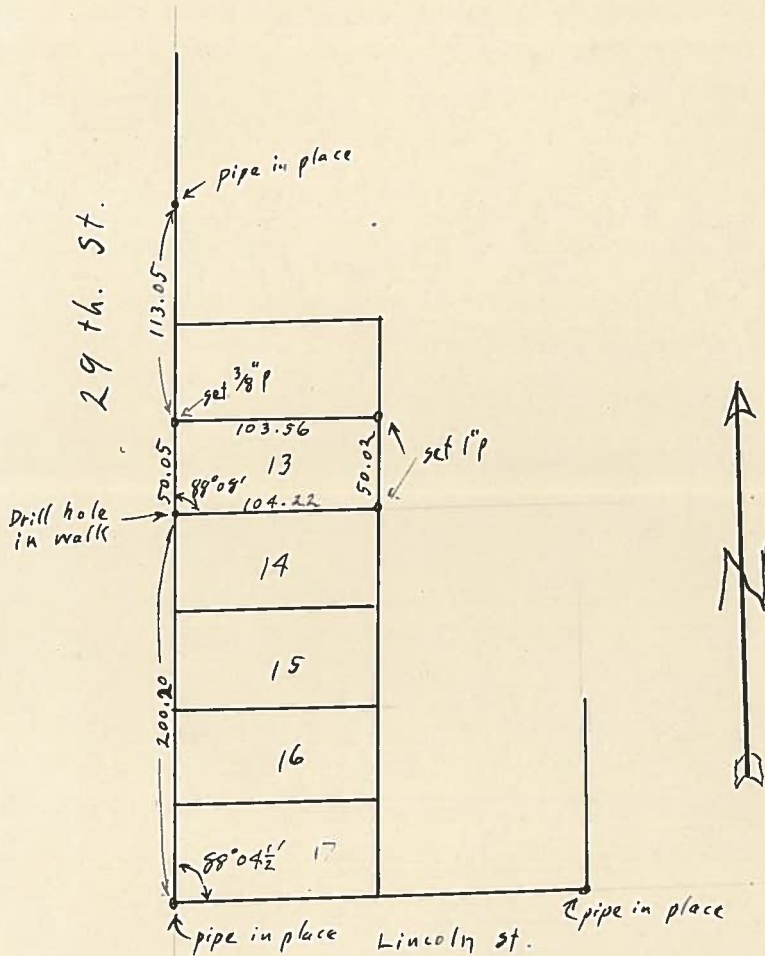 pipe in place
29 th. St.
113.05
set 3/8" P
103.56
50.05
13
50.02
set 1" P
88°08'
104.22
Drill hole
in walk
14
N
15
200.20
16
88°04½'
17
pipe in place
Lincoln St.
pipe in place